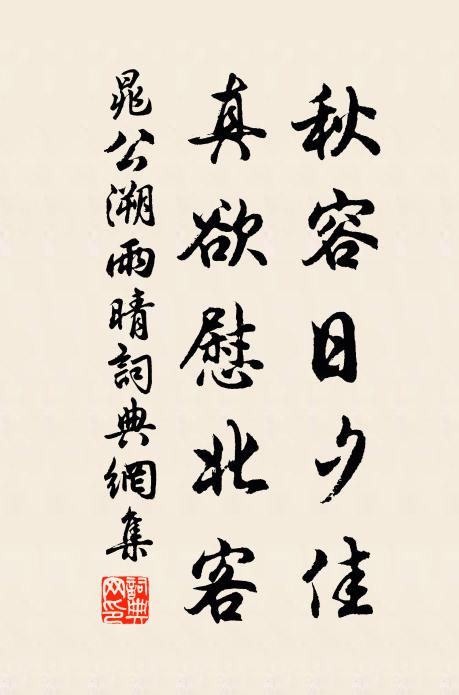 秋容日夕佳
真欲慰北客
晁公溯雨晴詞典網集
詞典网印